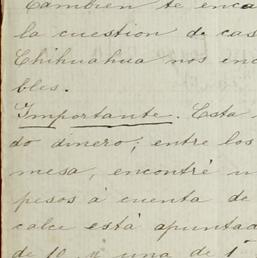 Tambien te enca
la cuestion de cas
Chihuahua nos enc
bles.
Importante. Esta
do dinero; entre los
mesa, encontré u
pesos á cuenta de
calce está apuntad
de 10 y una de 1